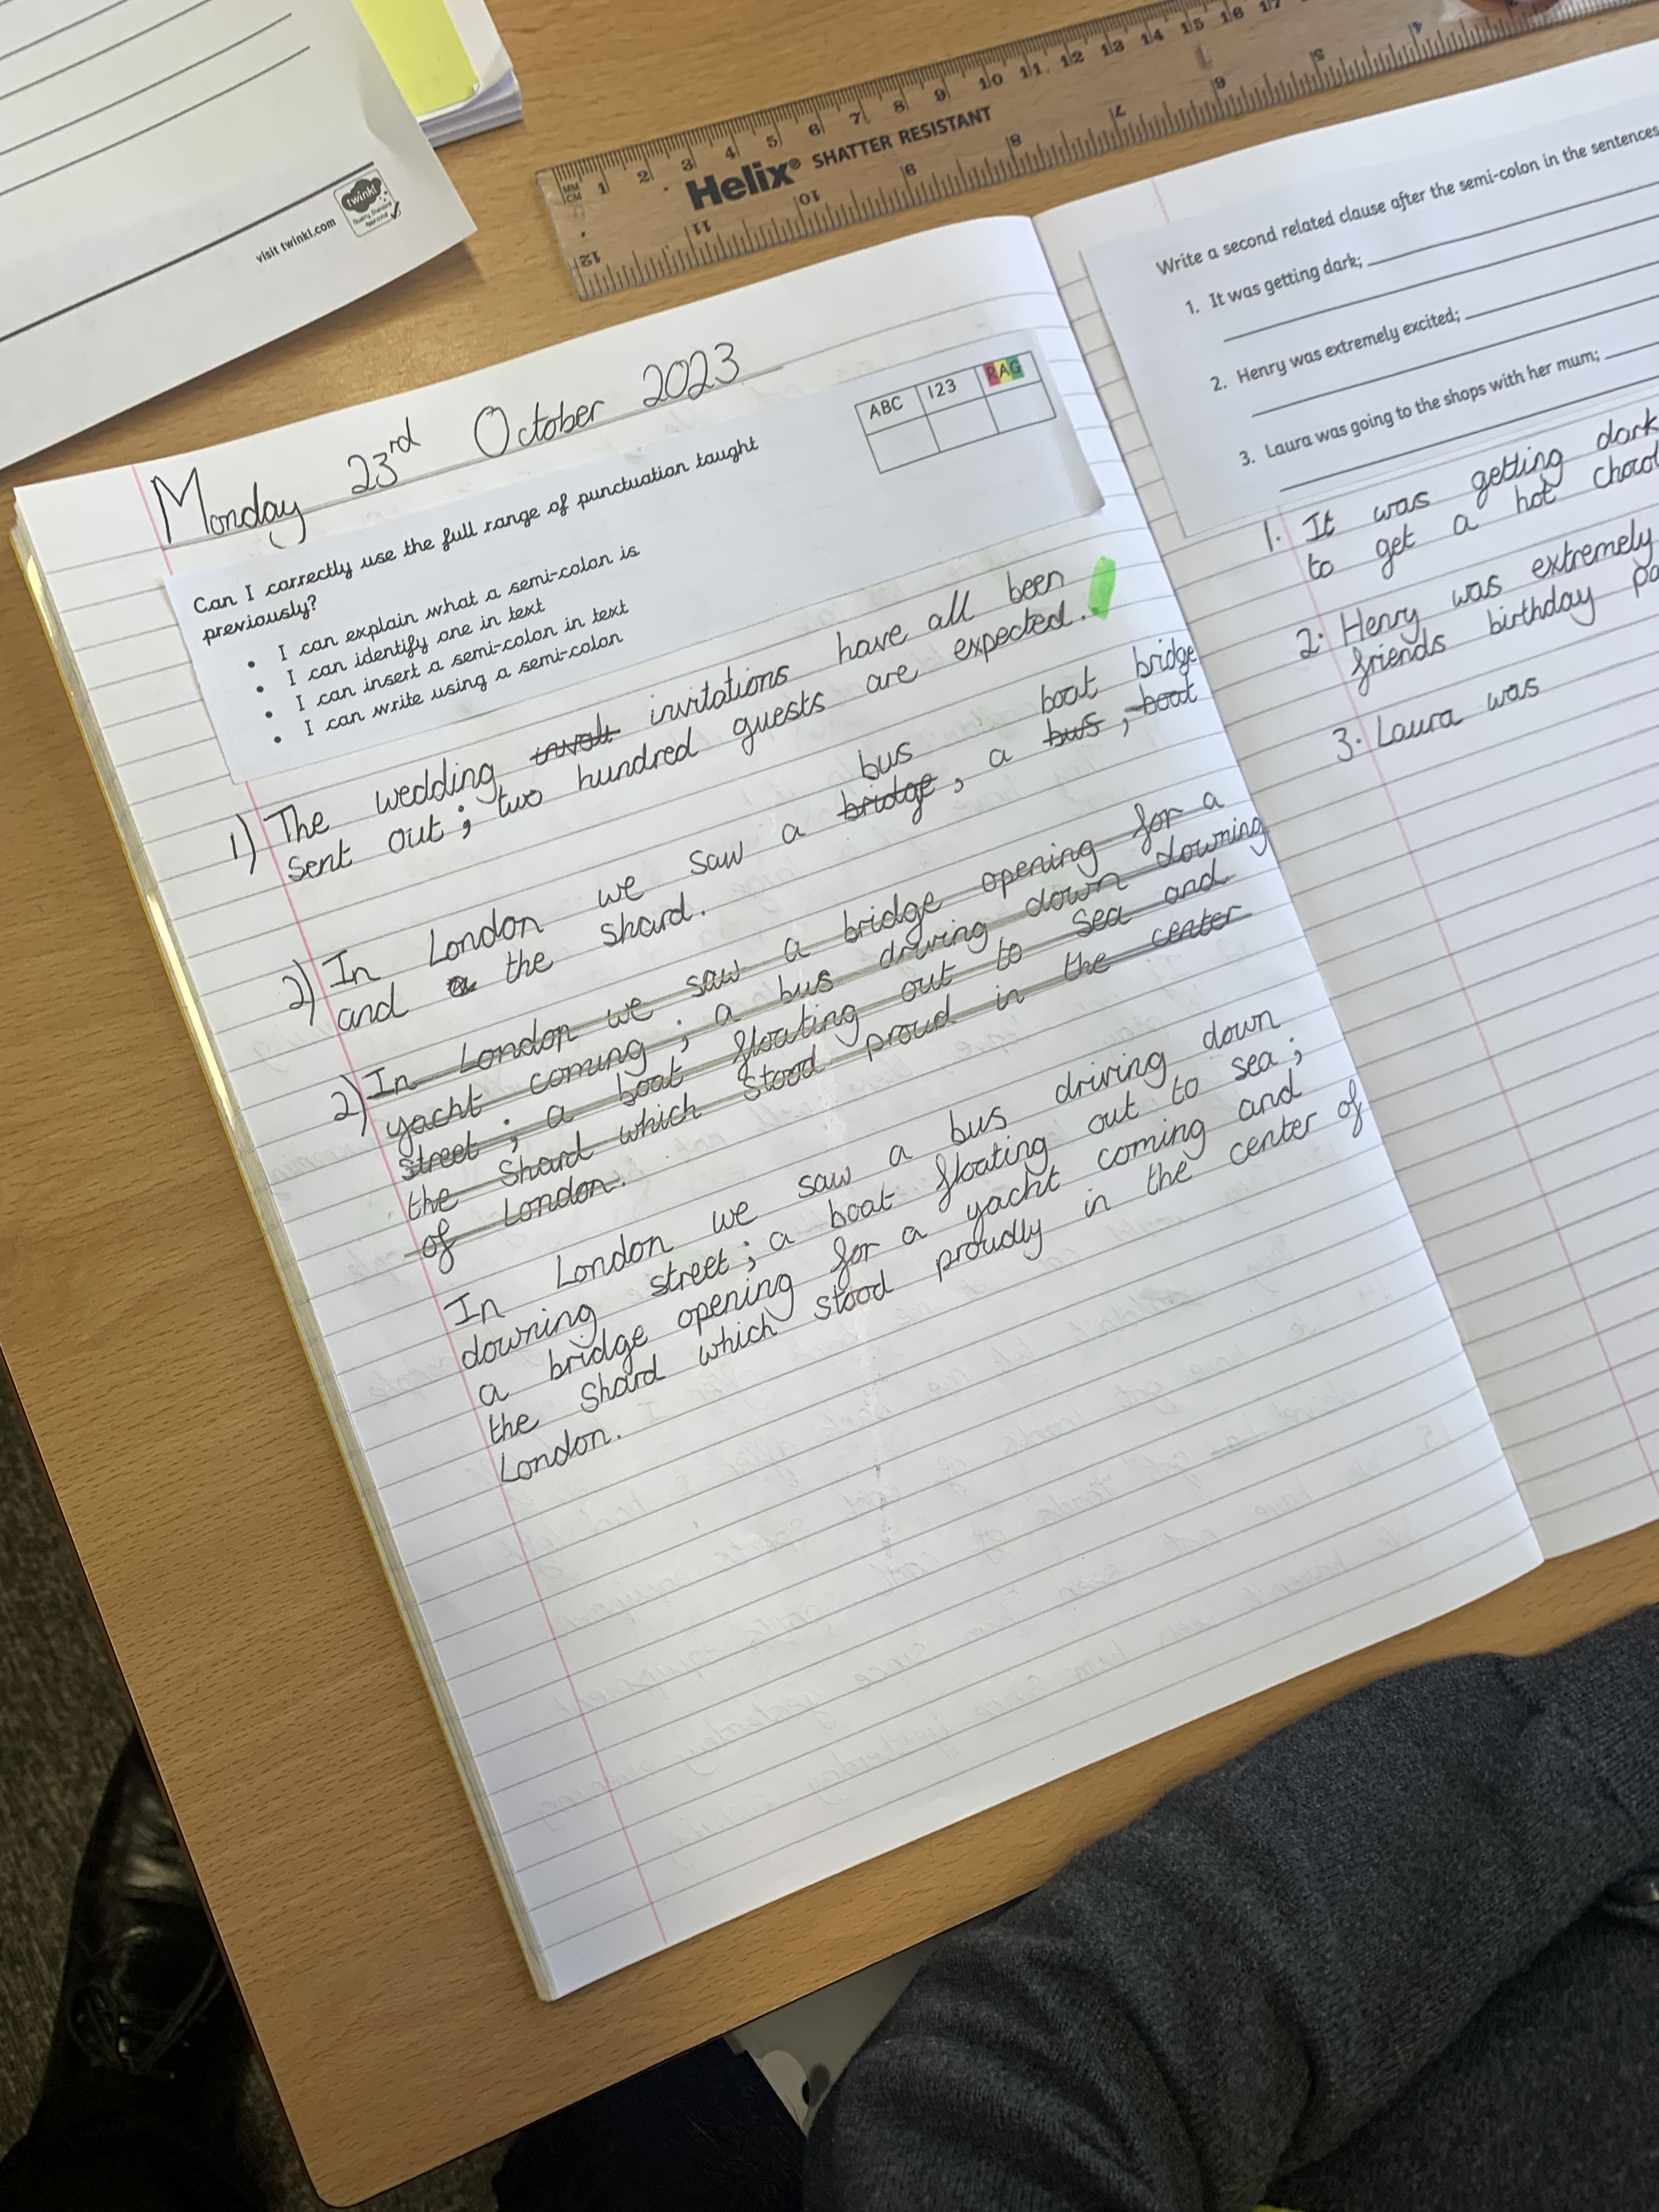 visit twinkl.com
twinkl
Quality Standard
Approved
MM
CM
1 2 3 4 5 6 7 8 9 10 11 12 13 14 15 16 17
Helix® SHATTER RESISTANT
12 11 10 9 8 7 6 5 4
Monday 23rd October 2023
ABC 123 RAG
Can I correctly use the full range of punctuation taught
previously?
• I can explain what a semi-colon is
• I can identify one in text
• I can insert a semi-colon in text
• I can write using a semi-colon
1) The wedding invitations have all been
sent out; two hundred guests are expected.
bus boat bridge
2) In London we saw a bridge, a bus, boat
and the shard.
2) In London we saw a bridge opening for a
yacht coming; a bus driving down downing
street; a boat floating out to sea and
the Shard which stood proud in the center
of London.
In London we saw a bus driving down
downing street; a boat floating out to sea;
a bridge opening for a yacht coming and
the Shard which stood proudly in the center of
London.
Write a second related clause after the semi-colon in the sentences
1. It was getting dark;
2. Henry was extremely excited;
3. Laura was going to the shops with her mum;
1. It was getting dark
to get a hot
2. Henry was extremely
friends birthday
3. Laura was